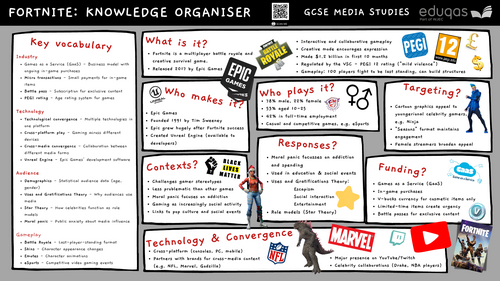 FORTNITE: KNOWLEDGE ORGANISER
GCSE MEDIA STUDIES
eduqas
Part of WJEC
Key vocabulary
Industry
- Games as a Service (GaaS) - Business model with ongoing in-game purchases
- Micro transactions - Small payments for in-game items
- Battle pass - Subscription for exclusive content
- PEGI rating - Age rating system for games
Technology
- Technological convergence - Multiple technologies in one platform
- Cross-platform play - Gaming across different devices
- Cross-media convergence - Collaboration between different media forms
- Unreal Engine - Epic Games' development software
Audience
- Demographics - Statistical audience data (age, gender)
- Uses and Gratifications Theory - Why audiences use media
- Star Theory - How celebrities function as role models
- Moral panic - Public anxiety about media influence
Gameplay
- Battle Royale - Last-player-standing format
- Skins - Character appearance changes
- Emotes - Character animations
- eSports - Competitive video gaming events
What is it?
- Fortnite is a multiplayer battle royale and creative survival game.
- Released 2017 by Epic Games
BATTLE ROYALE
EPIC GAMES
- Interactive and collaborative gameplay
- Creative mode encourages expression
- Made $1.2 billion in first 10 months
- Regulated by the VSC - PEGI 12 rating ("mild violence")
- Gameplay: 100 players fight to be last standing, can build structures
PEGI
12
Who makes it?
- Epic Games
- Founded 1991 by Tim Sweeney
- Epic grew hugely after Fortnite success
- Created Unreal Engine (available to developers)
Who plays it?
- 78% male, 22% female
- 53% aged 10-25
- 42% in full-time employment
- Casual and competitive games, e.g. eSports
Targeting?
- Cartoon graphics appeal to younger
- Regular celebrity games, live
- "Seasons" format maintains engagement
- Female streamers broaden appeal
Contexts?
BLACK LIVES MATTER
- Challenges gamer stereotypes
- Less problematic than other games
- Moral panic focuses on addiction
- Gaming as increasingly social activity
- Links to pop culture and social events
Responses?
- Moral panic focusses on addiction and spending
- Used in education & social events
- Uses and Gratifications Theory:
Escapism
Social interaction
Entertainment
- Role models (Star Theory)
Funding?
- Games as a Service (GaaS)
- In-game purchases
- V-bucks currency for cosmetic items only
- Limited-time items create urgency
- Battle passes for exclusive content
Technology & Convergence
- Cross-platform (consoles, PC, mobile)
- Partners with brands for cross-media content (e.g. NFL, Marvel, Godzilla)
NFL
MARVEL
- Major presence on YouTube/Twitch
- Celebrity collaborations (Drake, NBA players)
FORTNITE